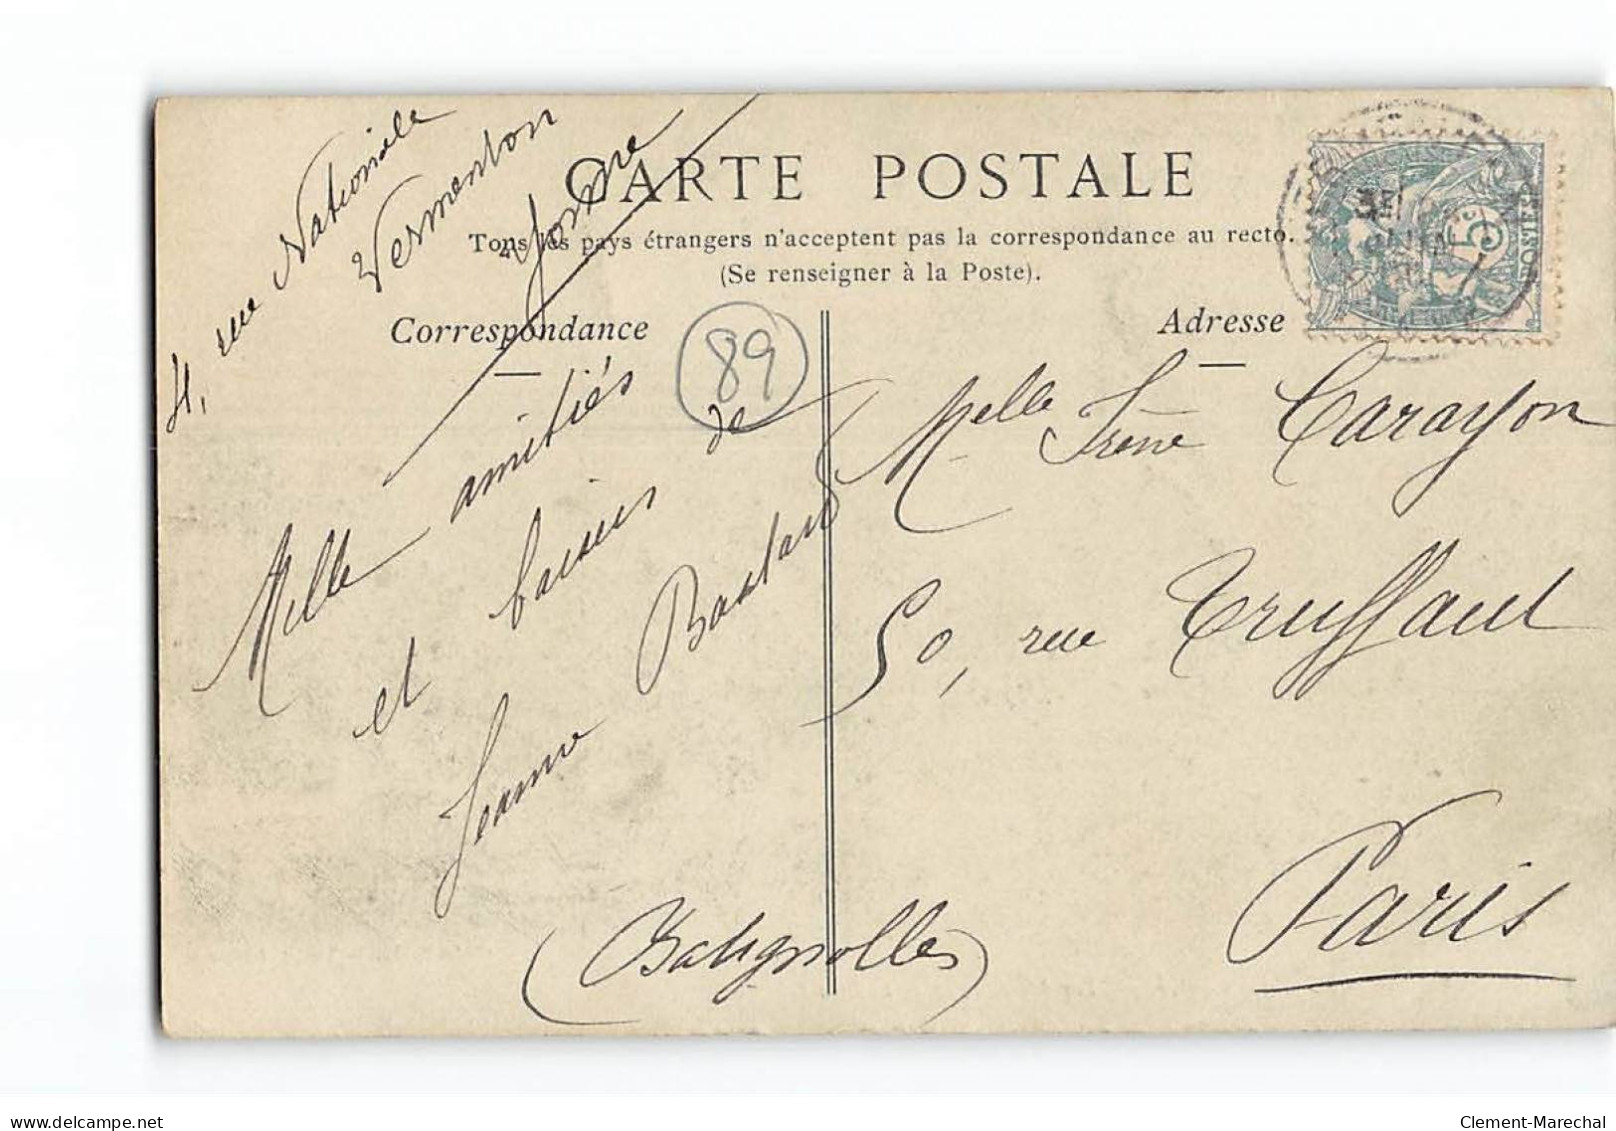 rue Nationale
Vermenton
Yonne
CARTE POSTALE
Tous les pays étrangers n'acceptent pas la correspondance au recto.
(Se renseigner à la Poste).
Correspondance
Adresse
89
5c
POSTES
Mille amitiés
et baisers de
Jeanne
Melle Irène Carayon
50, rue Truffaut
Paris
(Batignolles)
delcampe.net
Clement-Marechal